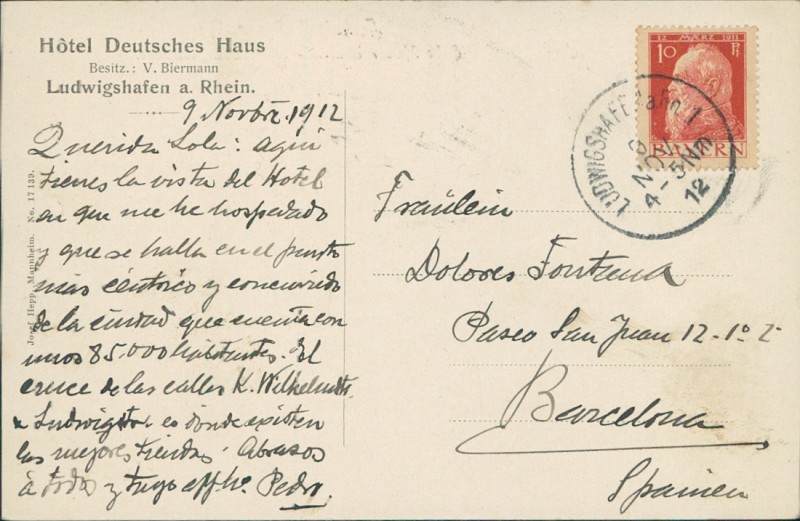 Hôtel Deutsches Haus
Besitz.: V. Biermann
Ludwigshafen a. Rhein.
9 Novbre. 1912
Querida Lola: Aquí
tienes la vista del Hotel
en que me he hospedado
y que se halla en el punto
mas céntrico y concurrido
de la ciudad que cuenta con
unos 85.000 habitantes. El
cruce de las calles K. Wilhelmstr.
Ludwigstr. es donde existen
las mejores tiendas. Abrasos
á todos y tuyo affmo. Pedro
Josef Hepp, Mannheim. No. 17139.
12 MÄRZ 1911
10 Pf
BAYERN
LUDWIGSHAFEN a.Rh. 1
9 NOV
4-5 Nm
12
Fraülein
Dolores Fontana
Paseo San Juan 12-1º 2ª
Barcelona
Spanien